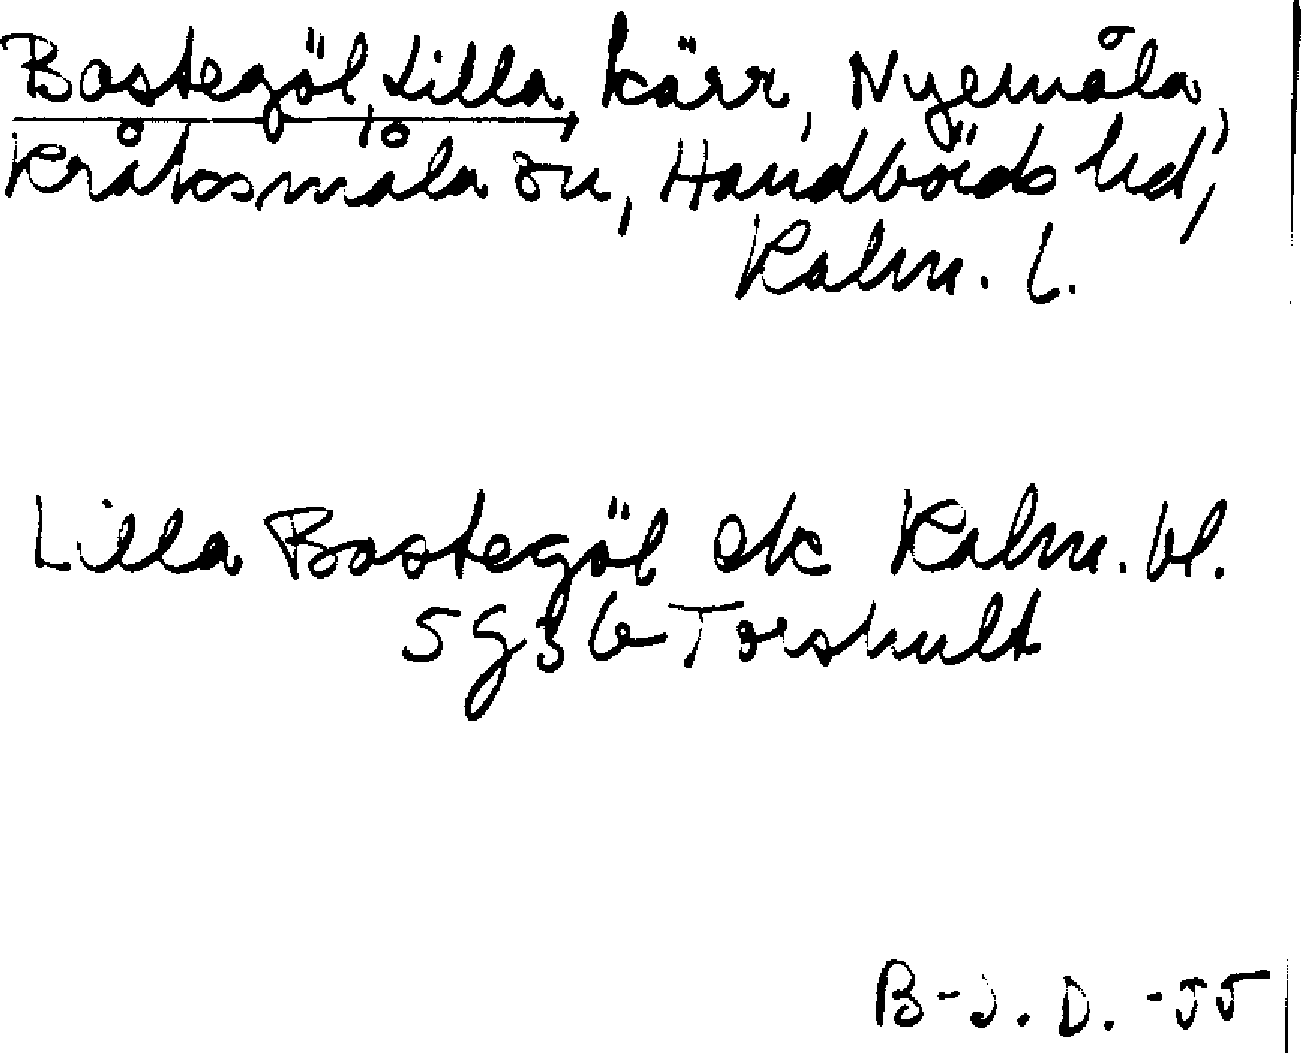 Bastegöl, Lilla, kärr, Nyemåla,
Kråksmåla sn, Handbörds hd,
Kalm. l.
Lilla Bastegöl ek Kalm. bl.
5g36 Torshult
B-J. D. -55